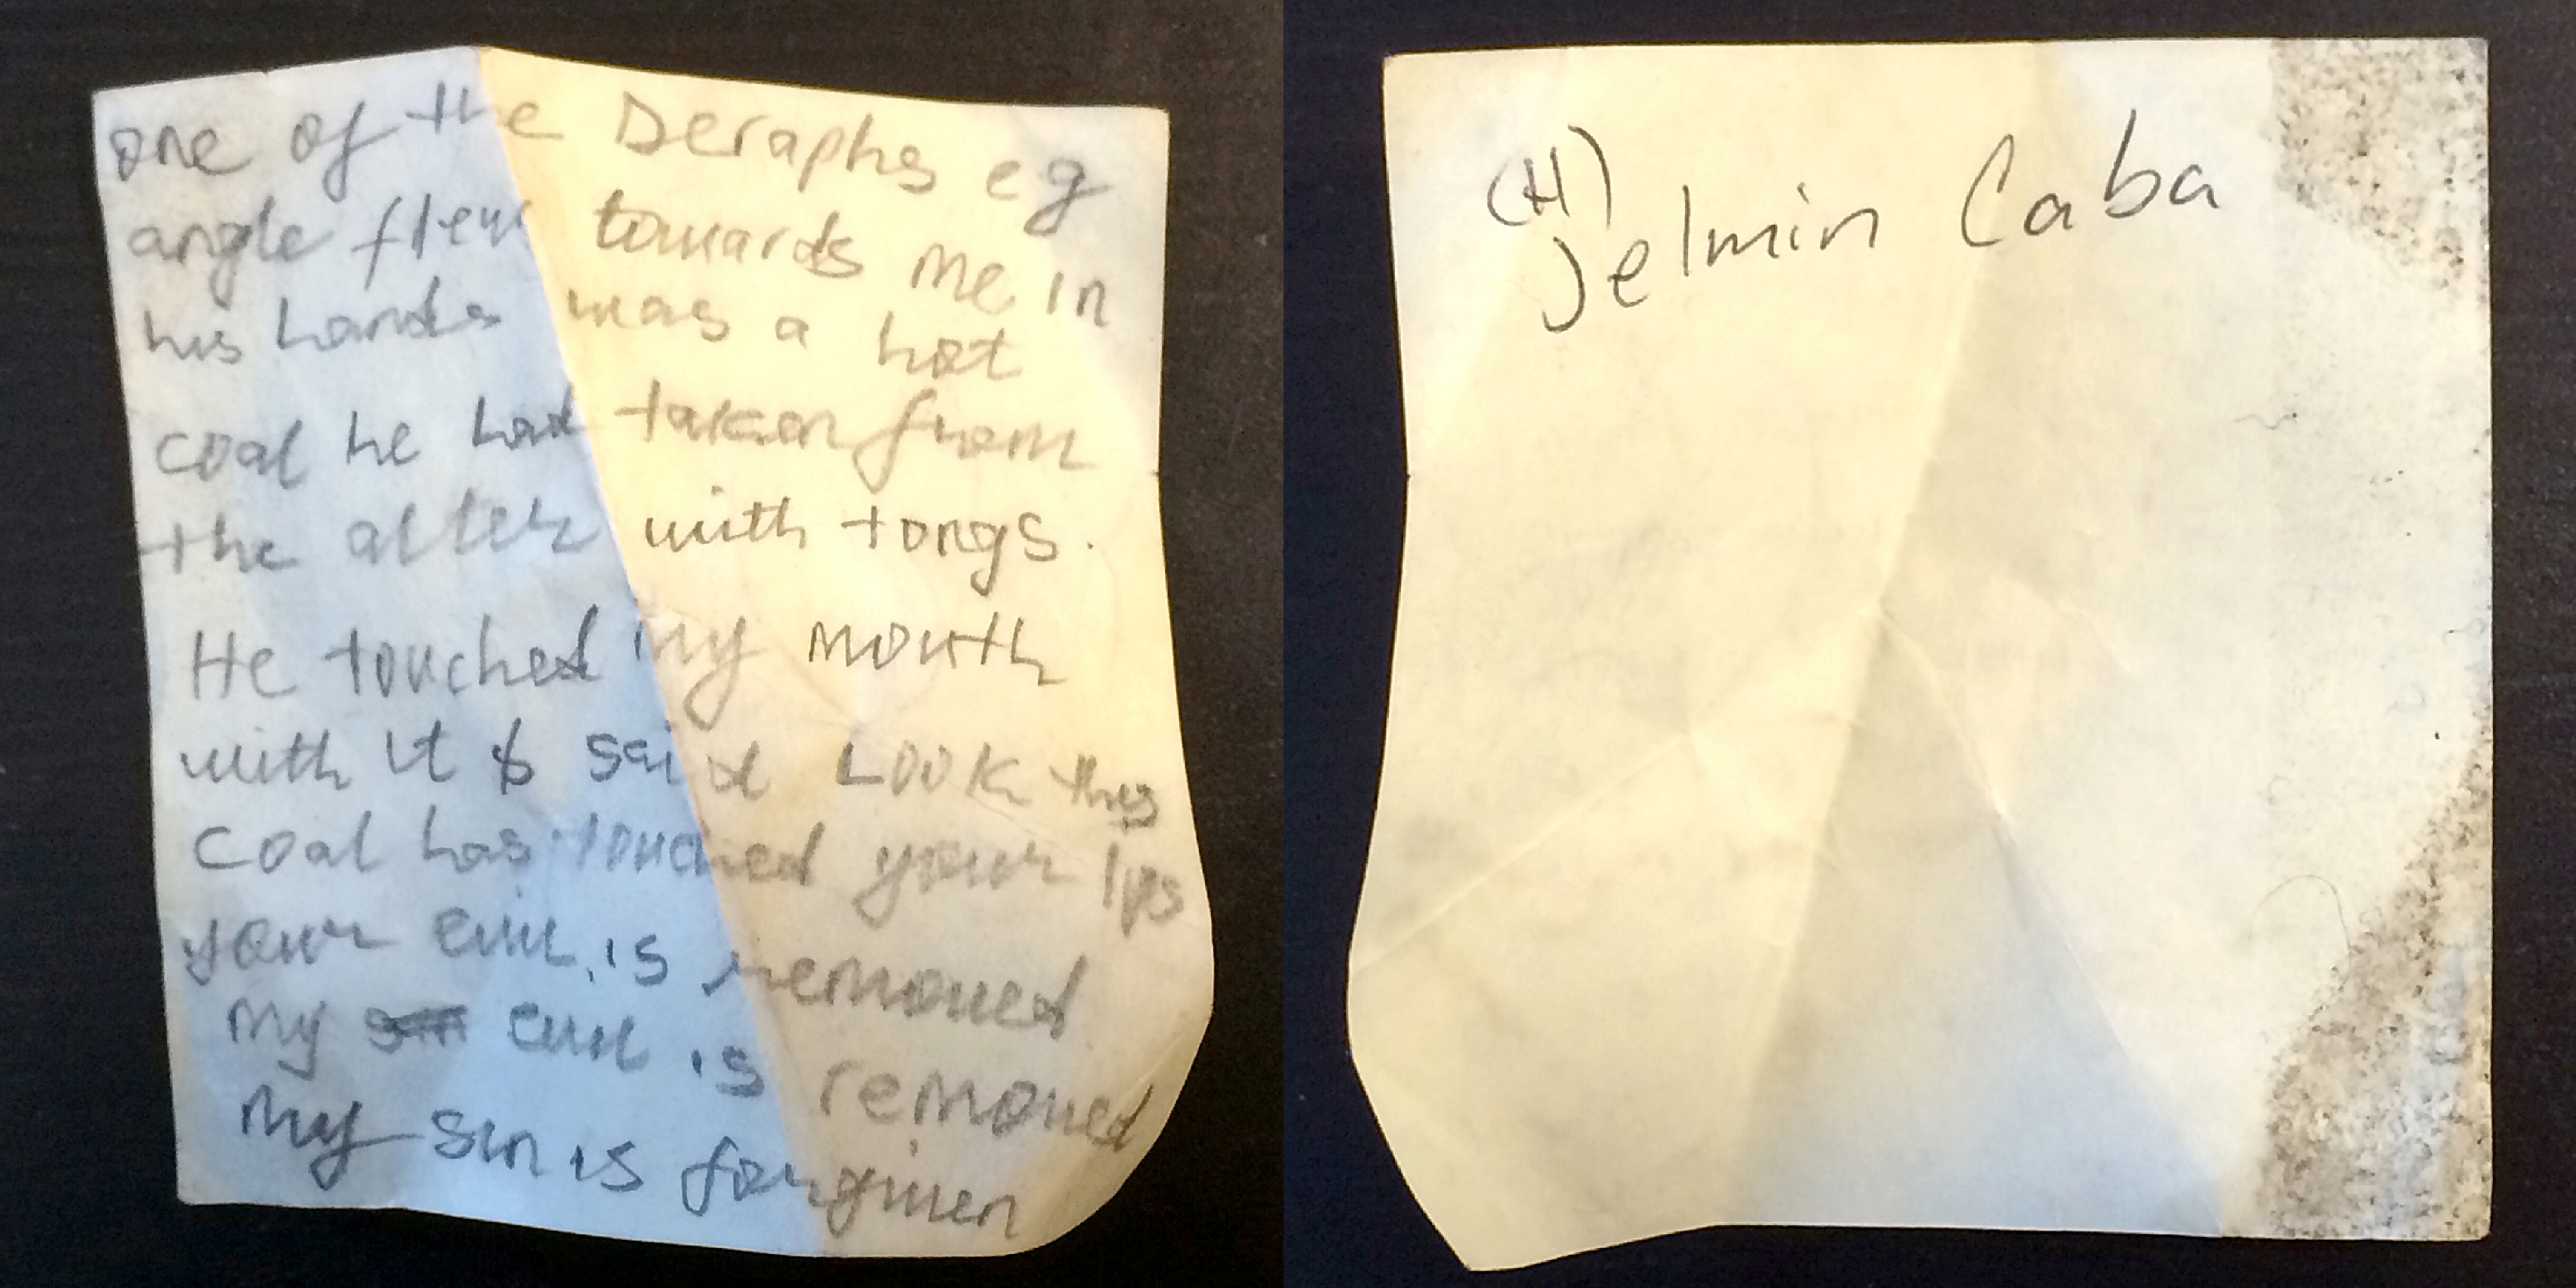 one of the Seraphs eg
angle flew towards me in
his hands was a hot
coal he had taken from
the alter with tongs.
He touched my mouth
with it & said Look this
coal has touched your lips
your evil is removed
my sin evil is removed
my sin is forgiven
(H)
Jelmin Caba